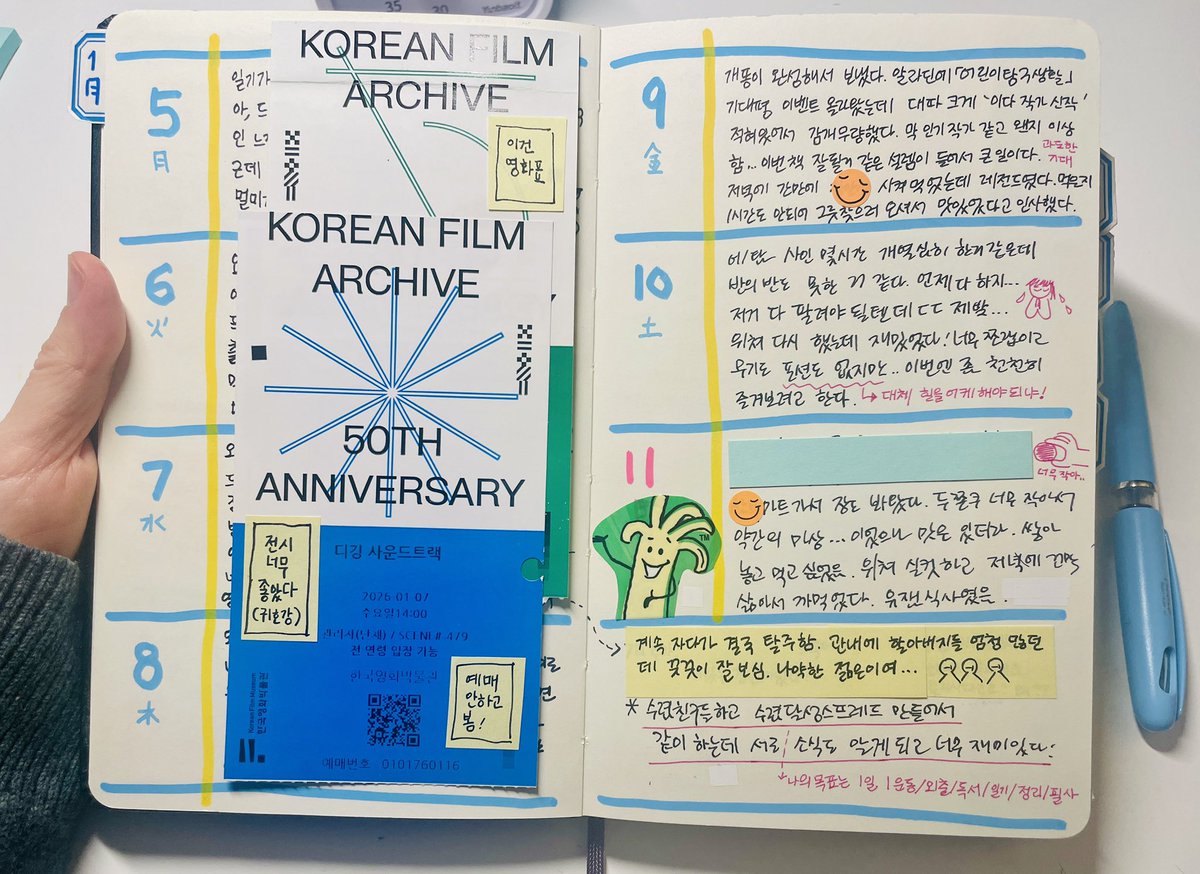 1月
5
月
6
火
7
水
8
木
일기가
아, 드
인 느
근데
멀미
KOREAN FILM
ARCHIVE
이건
영화표
KOREAN FILM
ARCHIVE
50TH
ANNIVERSARY
전시
너무
좋았다
(귀호강)
디깅 사운드트랙
2026-01-07
수요일14:00
/ SCENE# 479
전 연령 입장 가능
한국영화박물관
Korean Film Museum
한국영화박물관
예매
안하고
봄!
예매번호 0101760116
9
金
개풍이 완성해서 보냈다. 알라딘에 「어린이탐구생활」
기대평 이벤트 올라왔는데 대따 크게 '이다 작가 신작'
적혀있어서 감개무량했다. 막 인기작가 같고 왠지 이상
함.. 이번 책 잘될거 같은 설렘이 들어서 큰일이다.
과도한
기대
저녁에 간만에 시켜먹었는데 레전드였다. 먹은지
1시간도 안되어 그릇찾으러 오셔서 맛있었다고 인사했다.
10
土
사인 몇시간 개열심히 한거 같은데
반의 반도 못한 거 같다. 언제 다 하지...
저거 다 팔려야 될텐데 ㄷㄷ 제발...
위쳐 다시 했는데 재밌었다! 너무 쪼렙이고
무기도 포션도 없지만.. 이번엔 좀 천천히
즐겨보려고 한다.
대체 힐을 어케 해야 되냐!
11
너무 작아..
마트가서 장도 봐왔다. 두쫀쿠 너무 작아서
약간의 미상... 이었으나 맛은 있더라. 쌓아
놓고 먹고 싶었음. 위쳐 실컷 하고 저녁에
삶아서 까먹었다. 유잼식사였음.
TM
계속 자다가 결국 탈주함. 관내에 할아버지들 엄청 많았던
데 꼿꼿이 잘 보심. 나약한 젊은이여...
* 수련친구들하고 수련달성스프레드 만들어서
같이 하는데 서로 소식도 알게되고 너무 재미있다!
나의 목표는 1일 1운동/외출/독서/일기/정리/필사